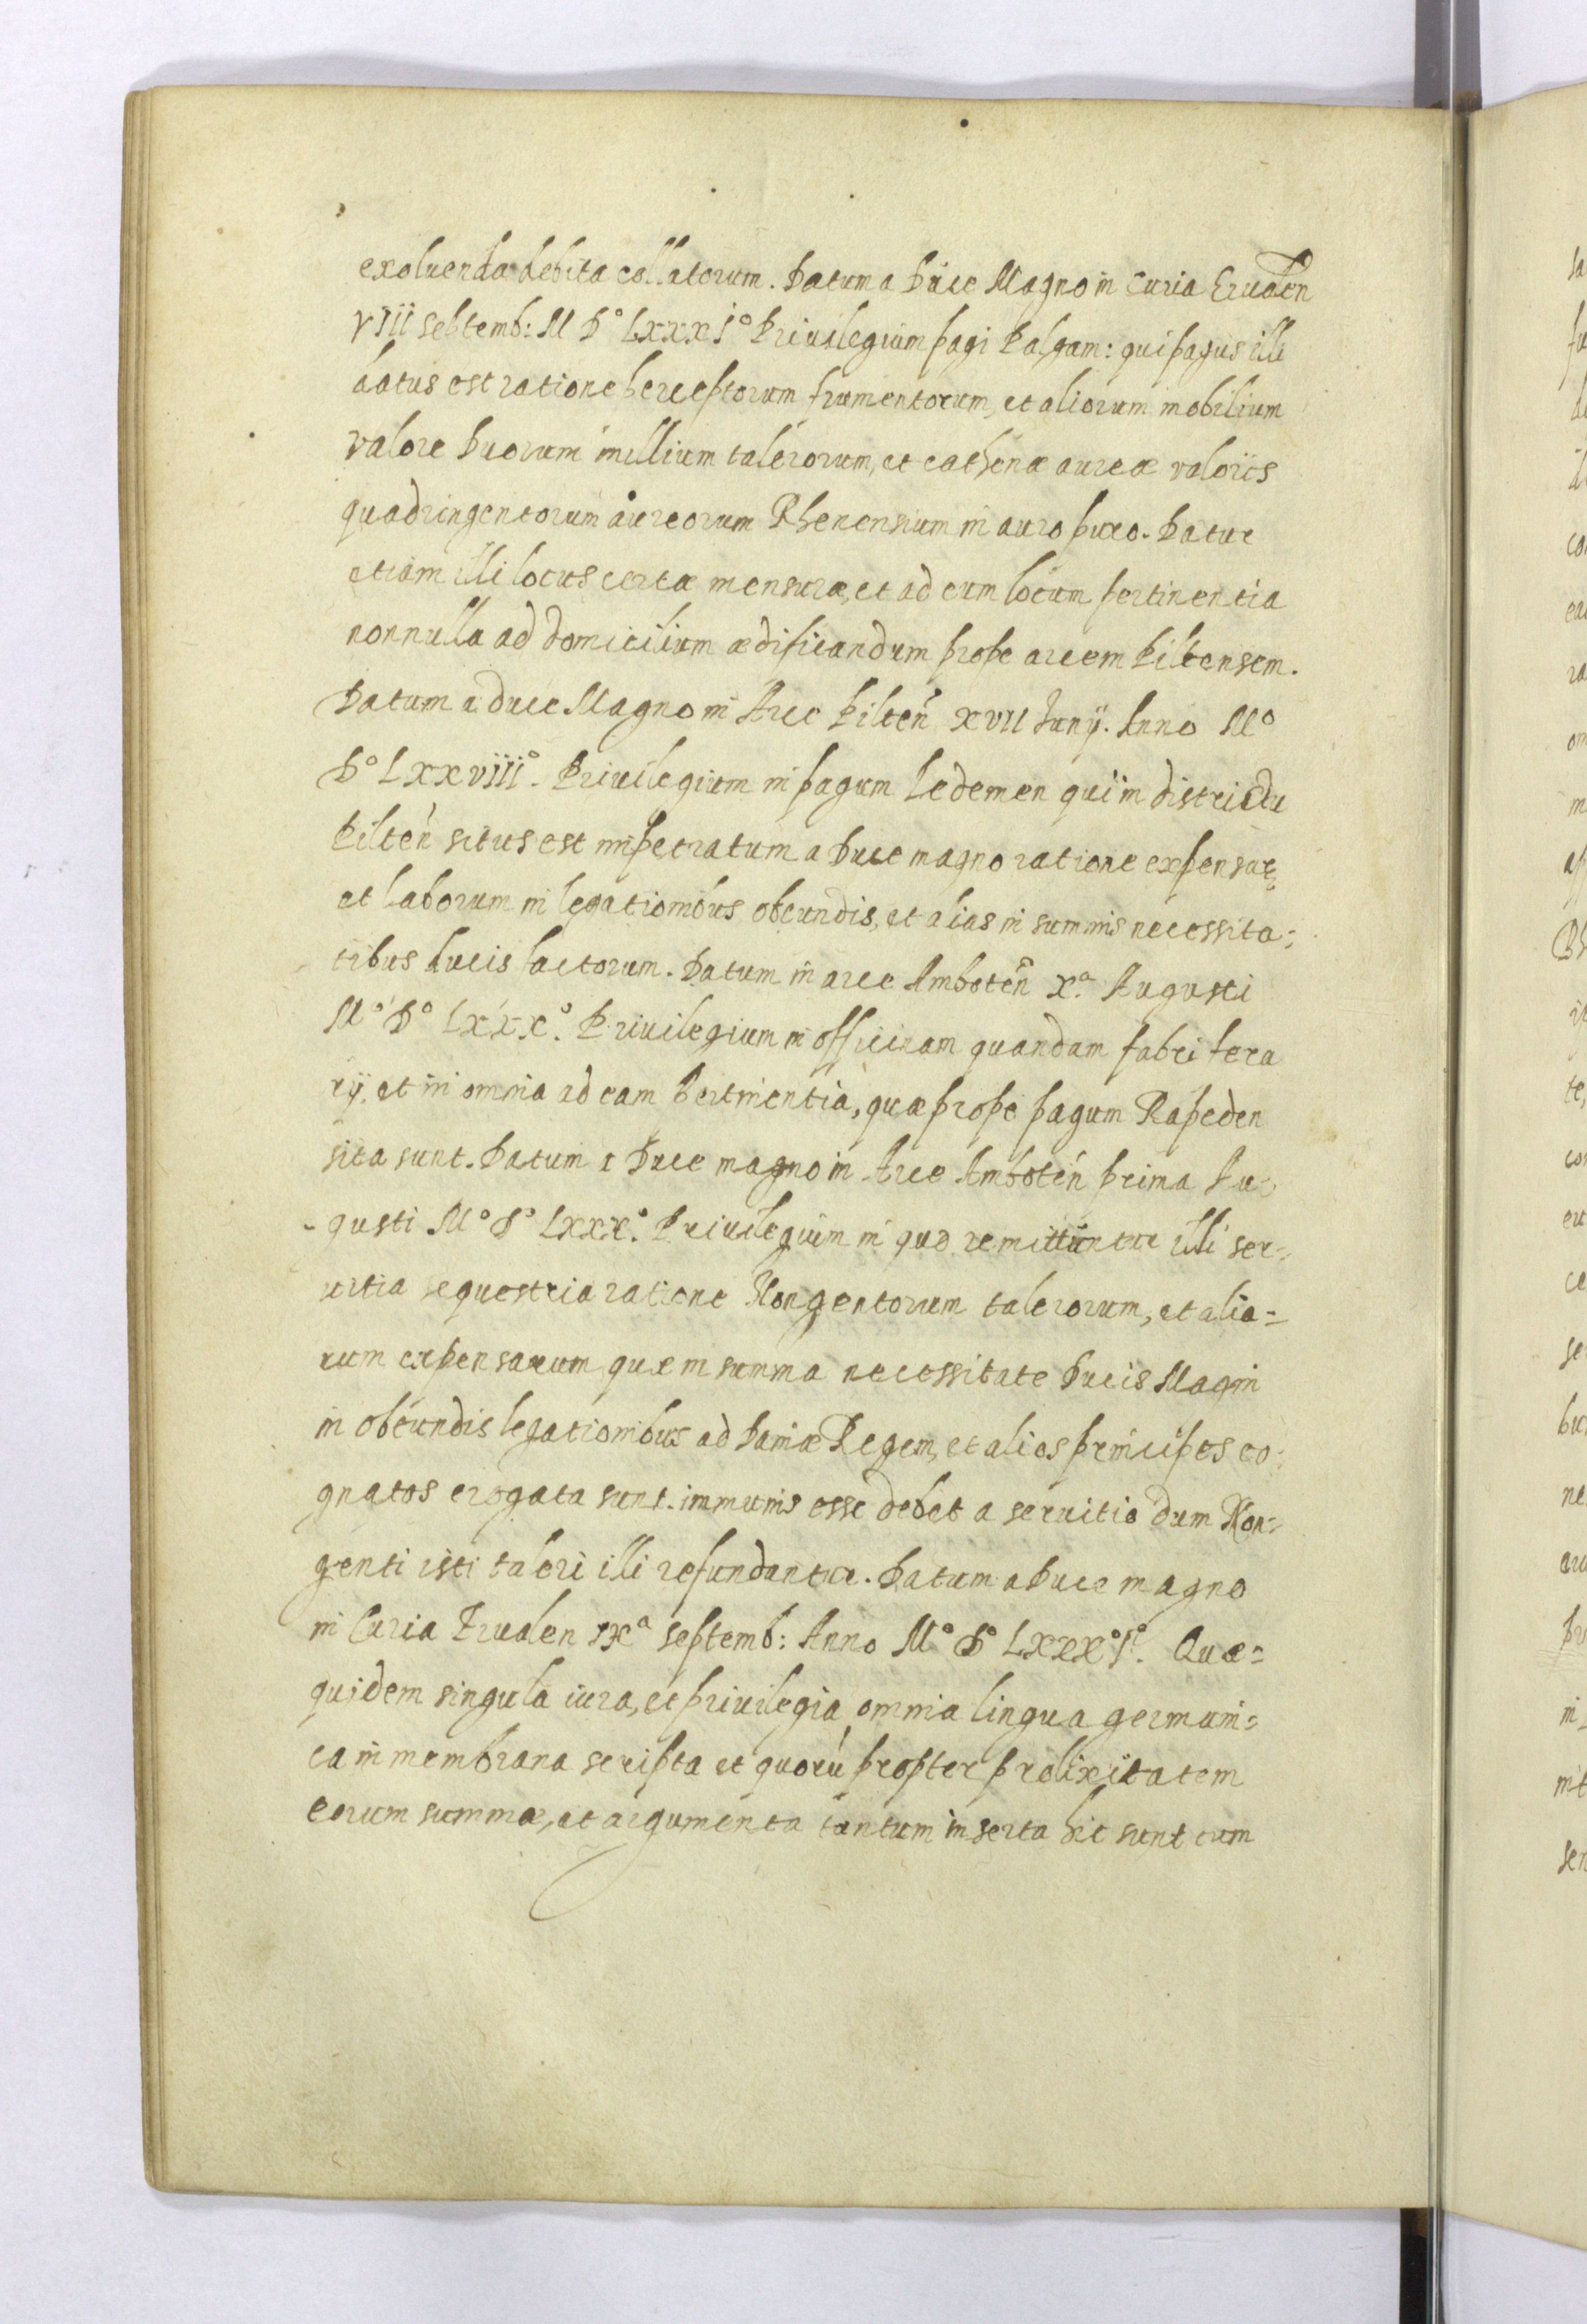 exoluenda debita collatorum. Datum a Duce Magno in Curia Erualen
VIII Septemb: M D° LXXXI° Priuilegium pagi Palgam: qui pagus illi
datus est ratione perceptorum frumentorum, et aliorum mobilium
valore Duorum millium talerorum, et cathenæ aureæ valoris
quadringentorum aureorum Rhenensium in auro puro. Datur
etiam illi locus certæ mensuræ, et ad eum locum pertinentia
nonnulla ad domicilium ædificandum prope arcem Piltensem.
Datum a duce Magno in Arce Pilten XVII Junÿ. Anno M°
D° LXXVIII°. Priuilegium in pagum Ledemen qui in districtu
Pilten situs est impetratum a Duce magno ratione expensarū,
et laborum in legationibus obeundis, et alias in summis necessita=
tibus ducis factorum. Datum in arce Amboten X.a Augusti
M° D° LXXX.° Priuilegium in officinam quandam fabri fera
rÿ, et in omnia ad eam pertinentia, quæ prope pagum Rapeden
sita sunt. Datum a Duce magno in Arce Amboten prima Au=
gusti M° D° LXXX.° Priuilegium in quo remittuntur illi ser=
uitia sequestria ratione Nongentorum talerorum, et alia=
rum expensarum quæ in summa necessitate Ducis Magni
in obeundis legationibus ad Daniæ Regem, et alios principes co=
gnatos erogata sunt. immunis esse debet a seruitio dum Non=
genti isti taleri illi refundantur. Datum a Duce magno
in Curia Erualen IXa Septemb: Anno M° D° LXXX°I°. Quæ=
quidem singula iura, et priuilegia omnia lingua germani=
ca in membrana scripta et quorū propter prolixitatem
eorum summæ, et argumenta tantum inserta hic sunt cum